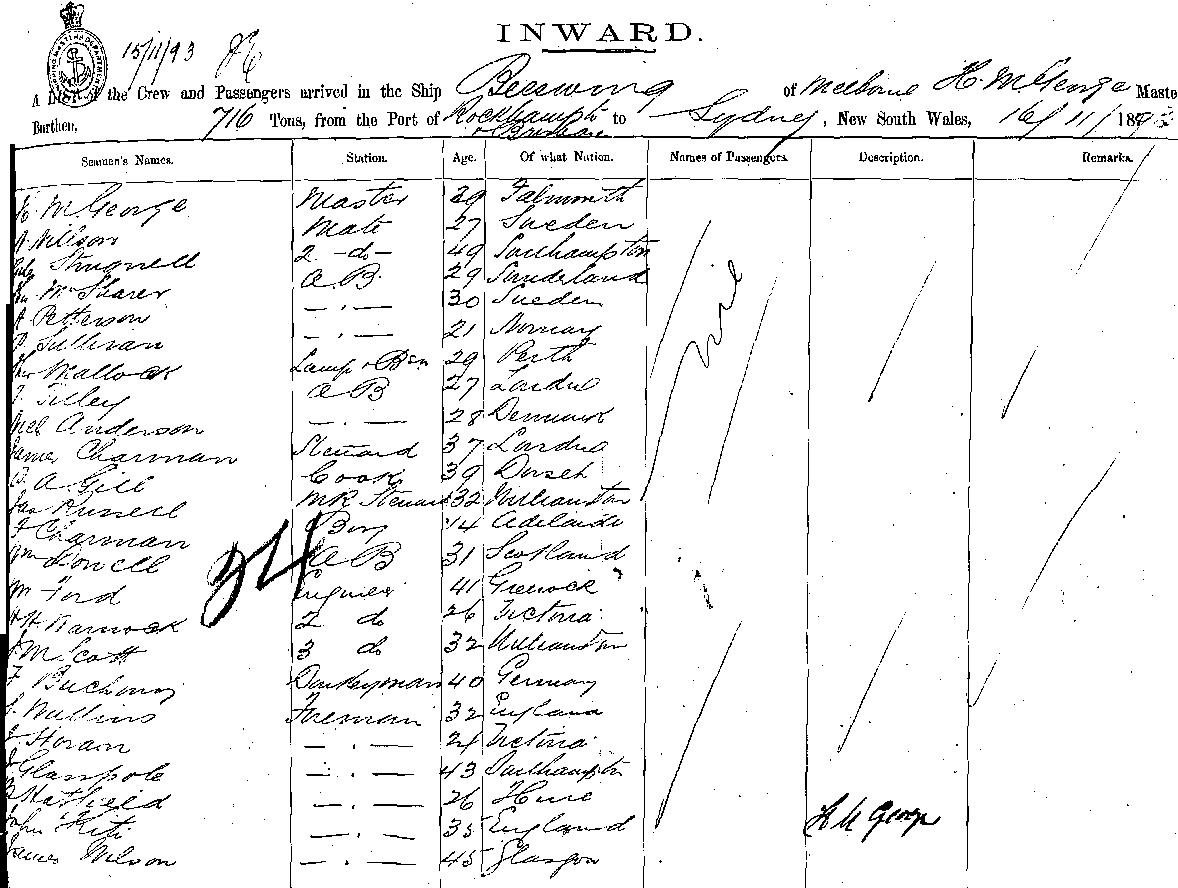 INWARD.
15/11/93
A List of the Crew and Passengers arrived in the Ship Beeswing of Melbourne H. McGeorge Master
Burthen, 716 Tons, from the Port of Rockhampt to Sydney, New South Wales, 16/11/1893
+ Brisbane
Seamen's Names. Station. Age. Of what Nation. Names of Passengers. Description. Remarks.
H. McGeorge Master 29 Falmouth
Nillson Mate 27 Sweden
Strugnell 2 -do- 49 Southampton
McSharer A.B. 29 Sunderland
Petterson — . — 30 Sweden
Sullivan — . — 21 Norway
Mallock Lamp + Bsn 29 Perth
Tilley A B 27 London
Anderson — . — 28 Denmark
James Charman Steward 37 London
A. Gill Cook 39 Dorset
Jas Russell MR Steward 32 Williamston
Charman Boy 14 Adelaide
Wm Dowell A B 31 Scotland
M Ford Enginer 41 Greenock
Warnock 2 do 26 Victoria
M Scott 3 do 32 Williamston
Donkeyman 40 Germany
Mullins Fireman 32 England
Horam — . — 24 Victoria
Glasspole — . — 43 Southampton
Hatfield — . — 26
John — . — 35 England
James Wilson — . — 45 Glasgow
nil
34
H McGeorge